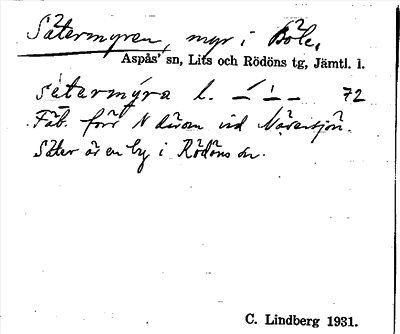 Sätermyren, myr i Böle,
Aspås' sn, Lits och Rödöns tg, Jämtl. l.
sätermýra l. 72
Fäb. förr N därom vid Näversjön.
Säter är en by i Rödöns sn.
C. Lindberg 1931.